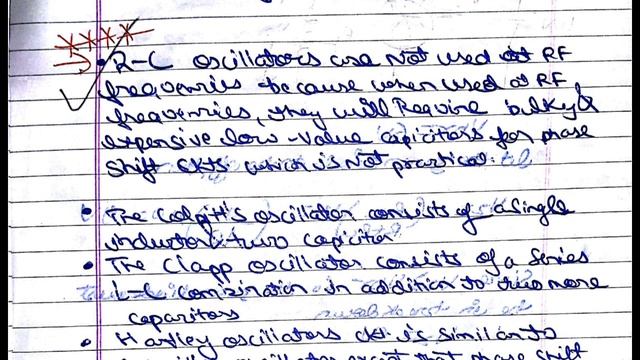 R-C oscillators are not used at RF
frequencies because when used at RF
frequencies, they will Require bulky &
expensive low-value capicitors for phase
shift CKts which is Not practical.
The Colpitt's oscillator consists of a single
inductor & two capicitor
The Clapp oscillator consists of a Series
L-C combination in addition to two more
capacitors
Hartley oscillators ckt is similar to
oscillator except that phase shift